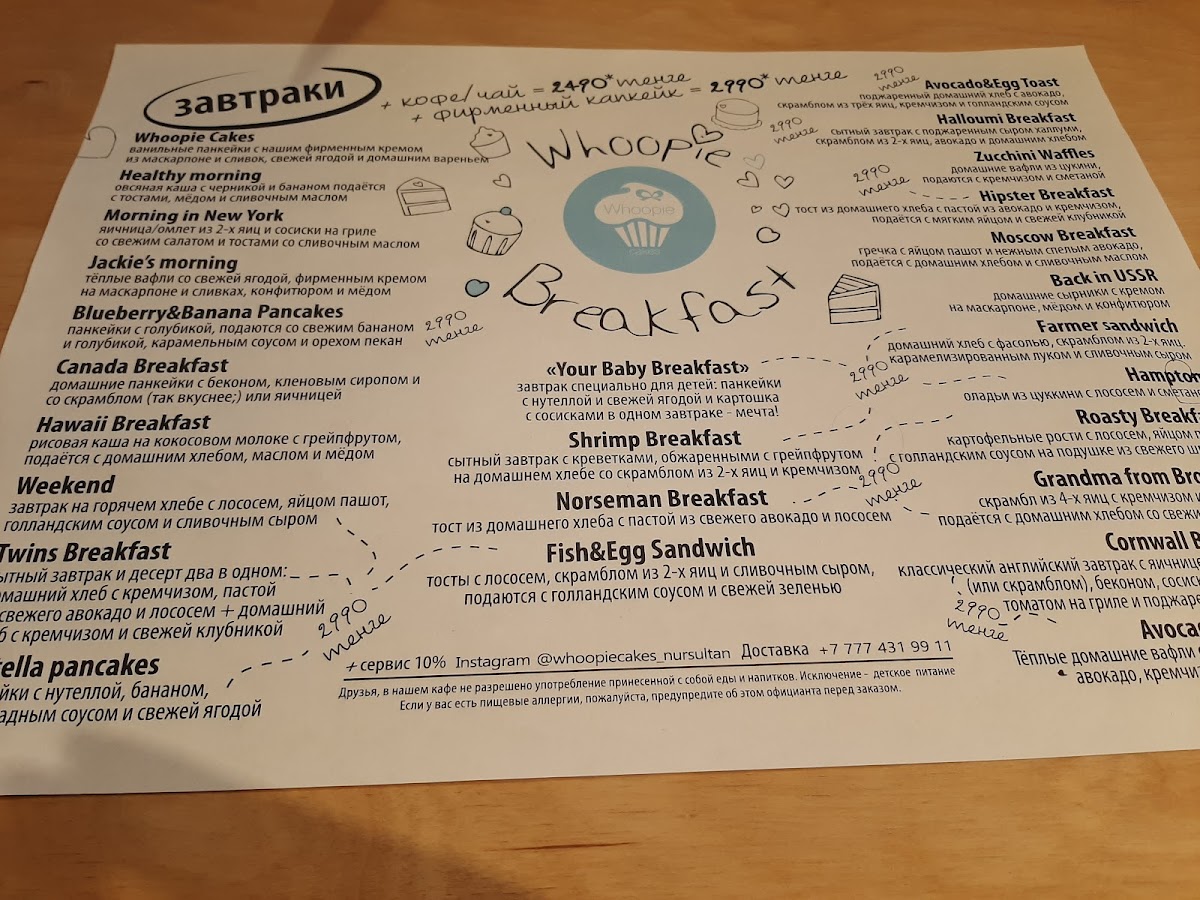 завтраки
+ кофе/чай = 2490* тенге
+ фирменный капкейк = 2990* тенге
Whoopie Cakes
ванильные панкейки с нашим фирменным кремом
из маскарпоне и сливок, свежей ягодой и домашним вареньем
Healthy morning
овсяная каша с черникой и бананом подаётся
с тостами, мёдом и сливочным маслом
Morning in New York
яичница/омлет из 2-х яиц и сосиски на гриле
со свежим салатом и тостами со сливочным маслом
Jackie's morning
тёплые вафли со свежей ягодой, фирменным кремом
на маскарпоне и сливках, конфитюром и мёдом
Blueberry&Banana Pancakes
панкейки с голубикой, подаются со свежим бананом
и голубикой, карамельным соусом и орехом пекан
2990
тенге
Canada Breakfast
домашние панкейки с беконом, кленовым сиропом и
со скрамблом (так вкуснее;) или яичницей
Hawaii Breakfast
рисовая каша на кокосовом молоке с грейпфрутом,
подаётся с домашним хлебом, маслом и мёдом
Weekend
завтрак на горячем хлебе с лососем, яйцом пашот,
голландским соусом и сливочным сыром
Twins Breakfast
ытный завтрак и десерт два в одном:
омашний хлеб с кремчизом, пастой
свежего авокадо и лососем + домашний
б с кремчизом и свежей клубникой
2990
тенге
ella pancakes
йки с нутеллой, бананом,
адным соусом и свежей ягодой
Whoopie
Whoopie
Breakfast
«Your Baby Breakfast»
завтрак специально для детей: панкейки
с нутеллой и свежей ягодой и картошка
с сосисками в одном завтраке - мечта!
Shrimp Breakfast
сытный завтрак с креветками, обжаренными с грейпфрутом
на домашнем хлебе со скрамблом из 2-х яиц и кремчизом
Norseman Breakfast
тост из домашнего хлеба с пастой из свежего авокадо и лососем
Fish&Egg Sandwich
тосты с лососем, скрамблом из 2-х яиц и сливочным сыром,
подаются с голландским соусом и свежей зеленью
2990
тенге
Avocado&Egg Toast
поджаренный домашний хлеб с авокадо,
скрамблом из трёх яиц, кремчизом и голландским соусом
2990
тенге
Halloumi Breakfast
сытный завтрак с поджаренным сыром халлуми,
скрамблом из 2-х яиц, авокадо и домашним хлебом
2990
тенге
Zucchini Waffles
домашние вафли из цукини,
подаются с кремчизом и сметаной
Hipster Breakfast
тост из домашнего хлеба с пастой из авокадо и кремчизом,
подаётся с мягким яйцом и свежей клубникой
Moscow Breakfast
гречка с яйцом пашот и нежным спелым авокадо,
подаётся с домашним хлебом и сливочным маслом
Back in USSR
домашние сырники с кремом
на маскарпоне, мёдом и конфитюром
Farmer sandwich
домашний хлеб с фасолью, скрамблом из 2-х яиц.
карамелизированным луком и сливочным сыром
2990
тенге
Hampton
оладьи из цуккини с лососем и сметан
Roasty Breakfa
картофельные рости с лососем, яйцом п
с голландским соусом на подушке из свежего ш
2990
тенге
Grandma from Bro
скрамбл из 4-х яиц с кремчизом и
подаётся с домашним хлебом со свежи
Cornwall B
классический английский завтрак с яичнице
(или скрамблом), беконом, сосис
томатом на гриле и поджаре
2990
тенге
Avocad
Тёплые домашние вафли с
авокадо, кремчи
+ сервис 10% Instagram @whoopiecakes_nursultan Доставка +7 777 431 99 11
Друзья, в нашем кафе не разрешено употребление принесенной с собой еды и напитков. Исключение - детское питание
Если у вас есть пищевые аллергии, пожалуйста, предупредите об этом официанта перед заказом.